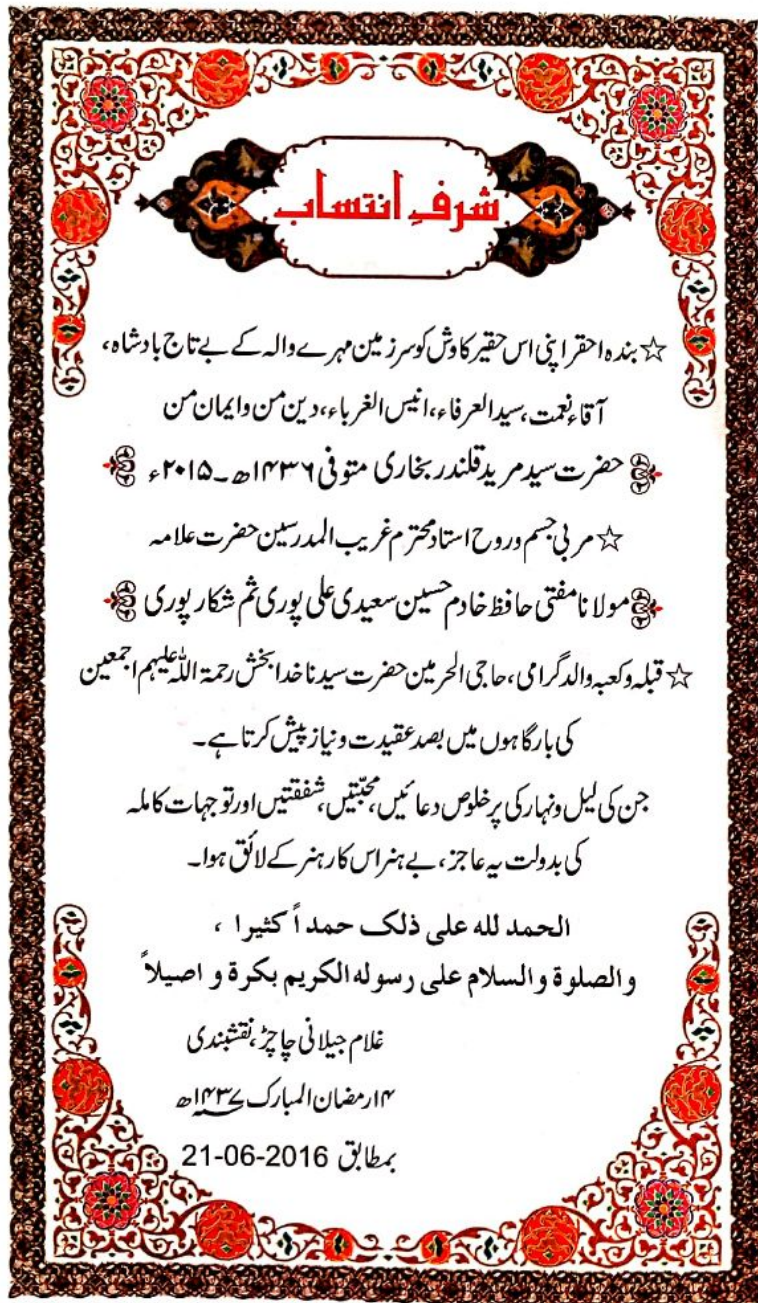 شرفِ انتساب
☆ بندہ احقر اپنی اس حقیر کاوش کو سرزمین مہرے والہ کے بے تاج بادشاہ،
آقاء نعمت، سید العرفاء، انیس الغرباء، دین من و ایمان من
حضرت سید مرید قلندر بخاری متوفی ۱۴۳۶ھ۔۲۰۱۵ء
☆ مربی جسم و روح استاد محترم غریب المدرسین حضرت علامہ
مولانا مفتی حافظ خادم حسین سعیدی علی پوری ثم شکارپوری
☆ قبلہ و کعبہ والد گرامی، حاجی الحرمین حضرت سیدنا خدا بخش رحمۃ اللہ علیہم اجمعین
کی بارگاہوں میں بصد عقیدت و نیاز پیش کرتا ہے۔
جن کی لیل و نہار کی پرخلوص دعائیں، محبّتیں، شفقتیں اور توجہات کاملہ
کی بدولت یہ عاجز، بے ہنر اس کار ہنر کے لائق ہوا۔
الحمد لله علی ذلک حمداً کثیرا ،
والصلوة والسلام علی رسوله الکریم بکرة و اصیلاً
غلام جیلانی چاچڑ، نقشبندی
۱۴/رمضان المبارک ۱۴۳۷ھ
بمطابق 21-06-2016